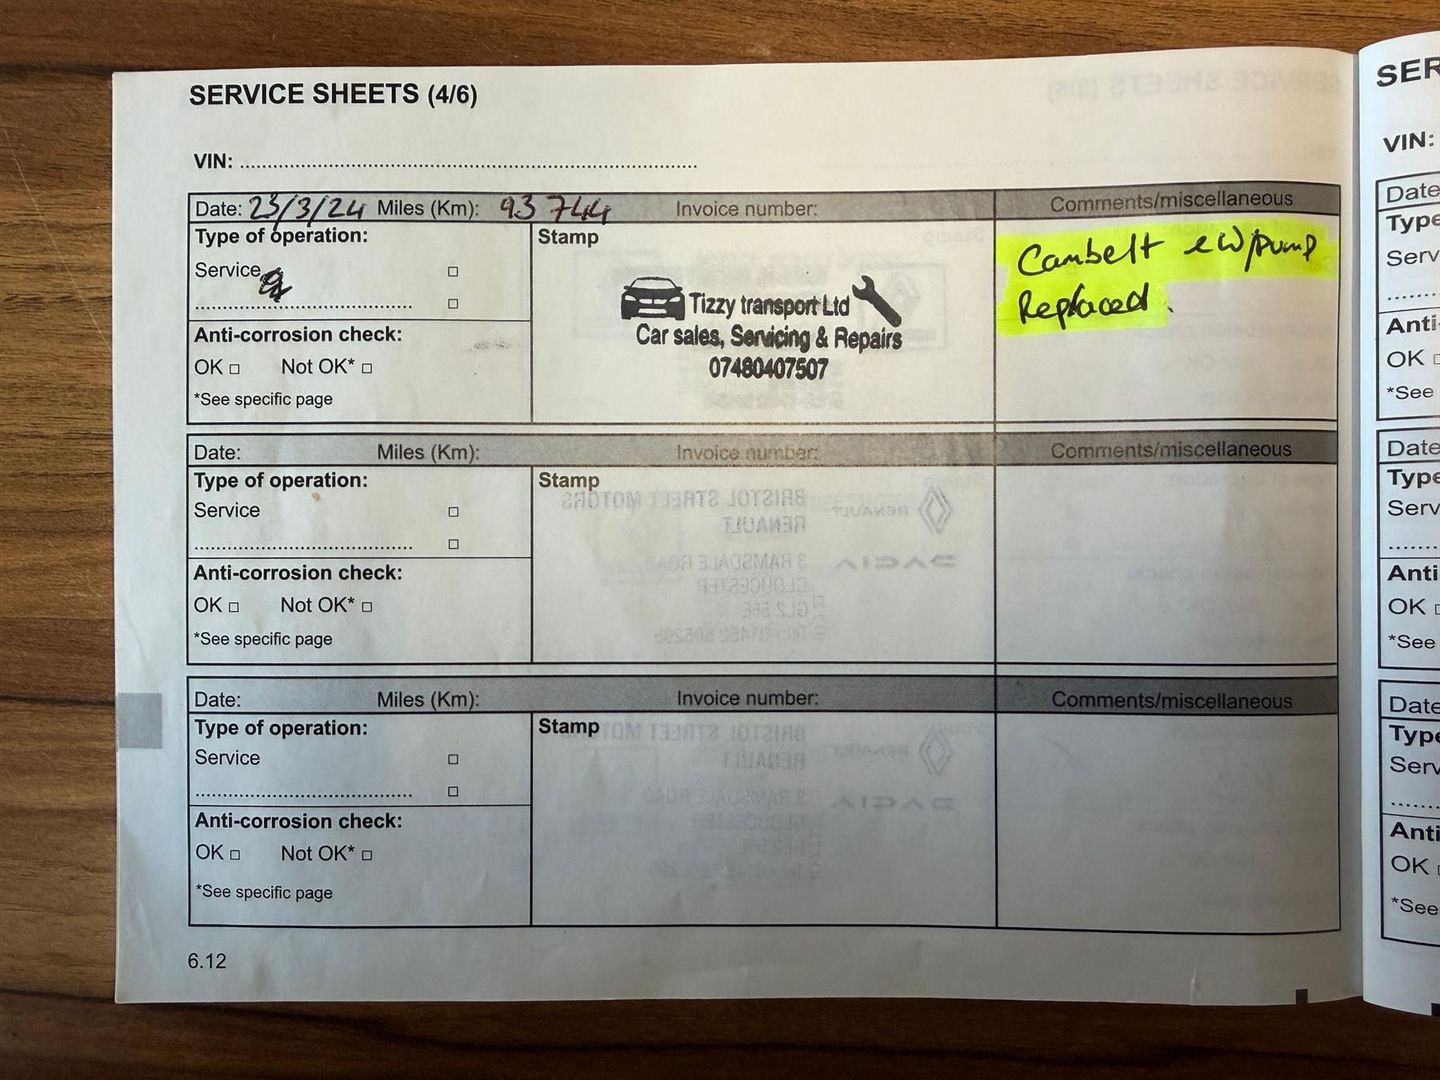 SERVICE SHEETS (4/6)
VIN:
Date: 23/3/24 Miles (Km): 93 744 Invoice number: Comments/miscellaneous
Type of operation:
Service
Anti-corrosion check:
OK □ Not OK* □
*See specific page
Stamp
Tizzy transport Ltd
Car sales, Servicing & Repairs
07480407507
Cambelt & W/pump
Replaced.
Date: Miles (Km): Invoice number: Comments/miscellaneous
Type of operation:
Service
Anti-corrosion check:
OK □ Not OK* □
*See specific page
Stamp
Date: Miles (Km): Invoice number: Comments/miscellaneous
Type of operation:
Service
Anti-corrosion check:
OK □ Not OK* □
*See specific page
Stamp
6.12
VIN:
Date
Anti
OK
*See
Date
Anti
OK
*See
Date
Anti
OK
*See